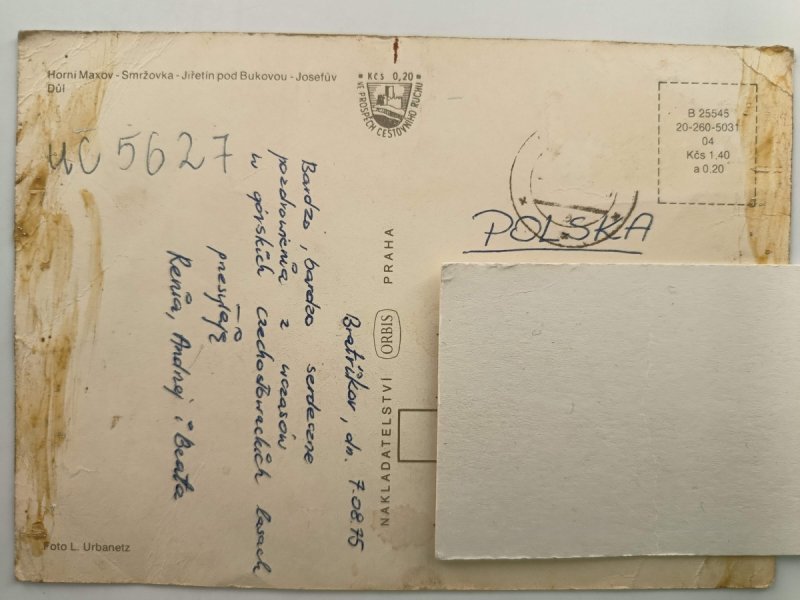 Horní Maxov - Smržovka - Jiřetín pod Bukovou - Josefův
Důl
Kčs 0,20
VE PROSPĚCH CESTOVNÍHO RUCHU
B 25545
20-260-5031
04
Kčs 1,40
a 0,20
uč 5627
POLSKA
Bratřikov, dn. 7.08.75
Bardzo, bardzo serdeczne
pozdrowienia z wczasów
w górskich czechosłowackich lasach
przesyłają
Renia, Andrzej i Beata
NAKLADATELSTVÍ ORBIS PRAHA
Foto L. Urbanetz